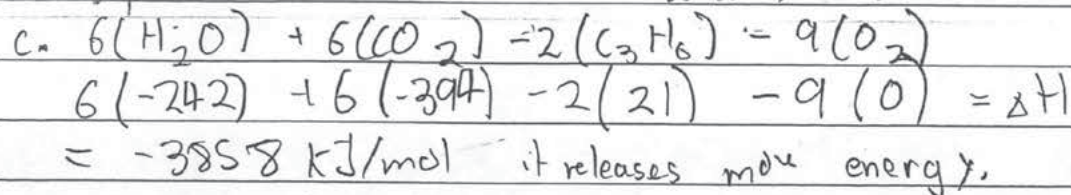 c. 6(H₂O) + 6(CO₂) - 2(C₃H₆) - 9(O₂)
6(-242) + 6(-394) - 2(21) - 9(0) = ΔH
= -3858 kJ/mol it releases more energy.